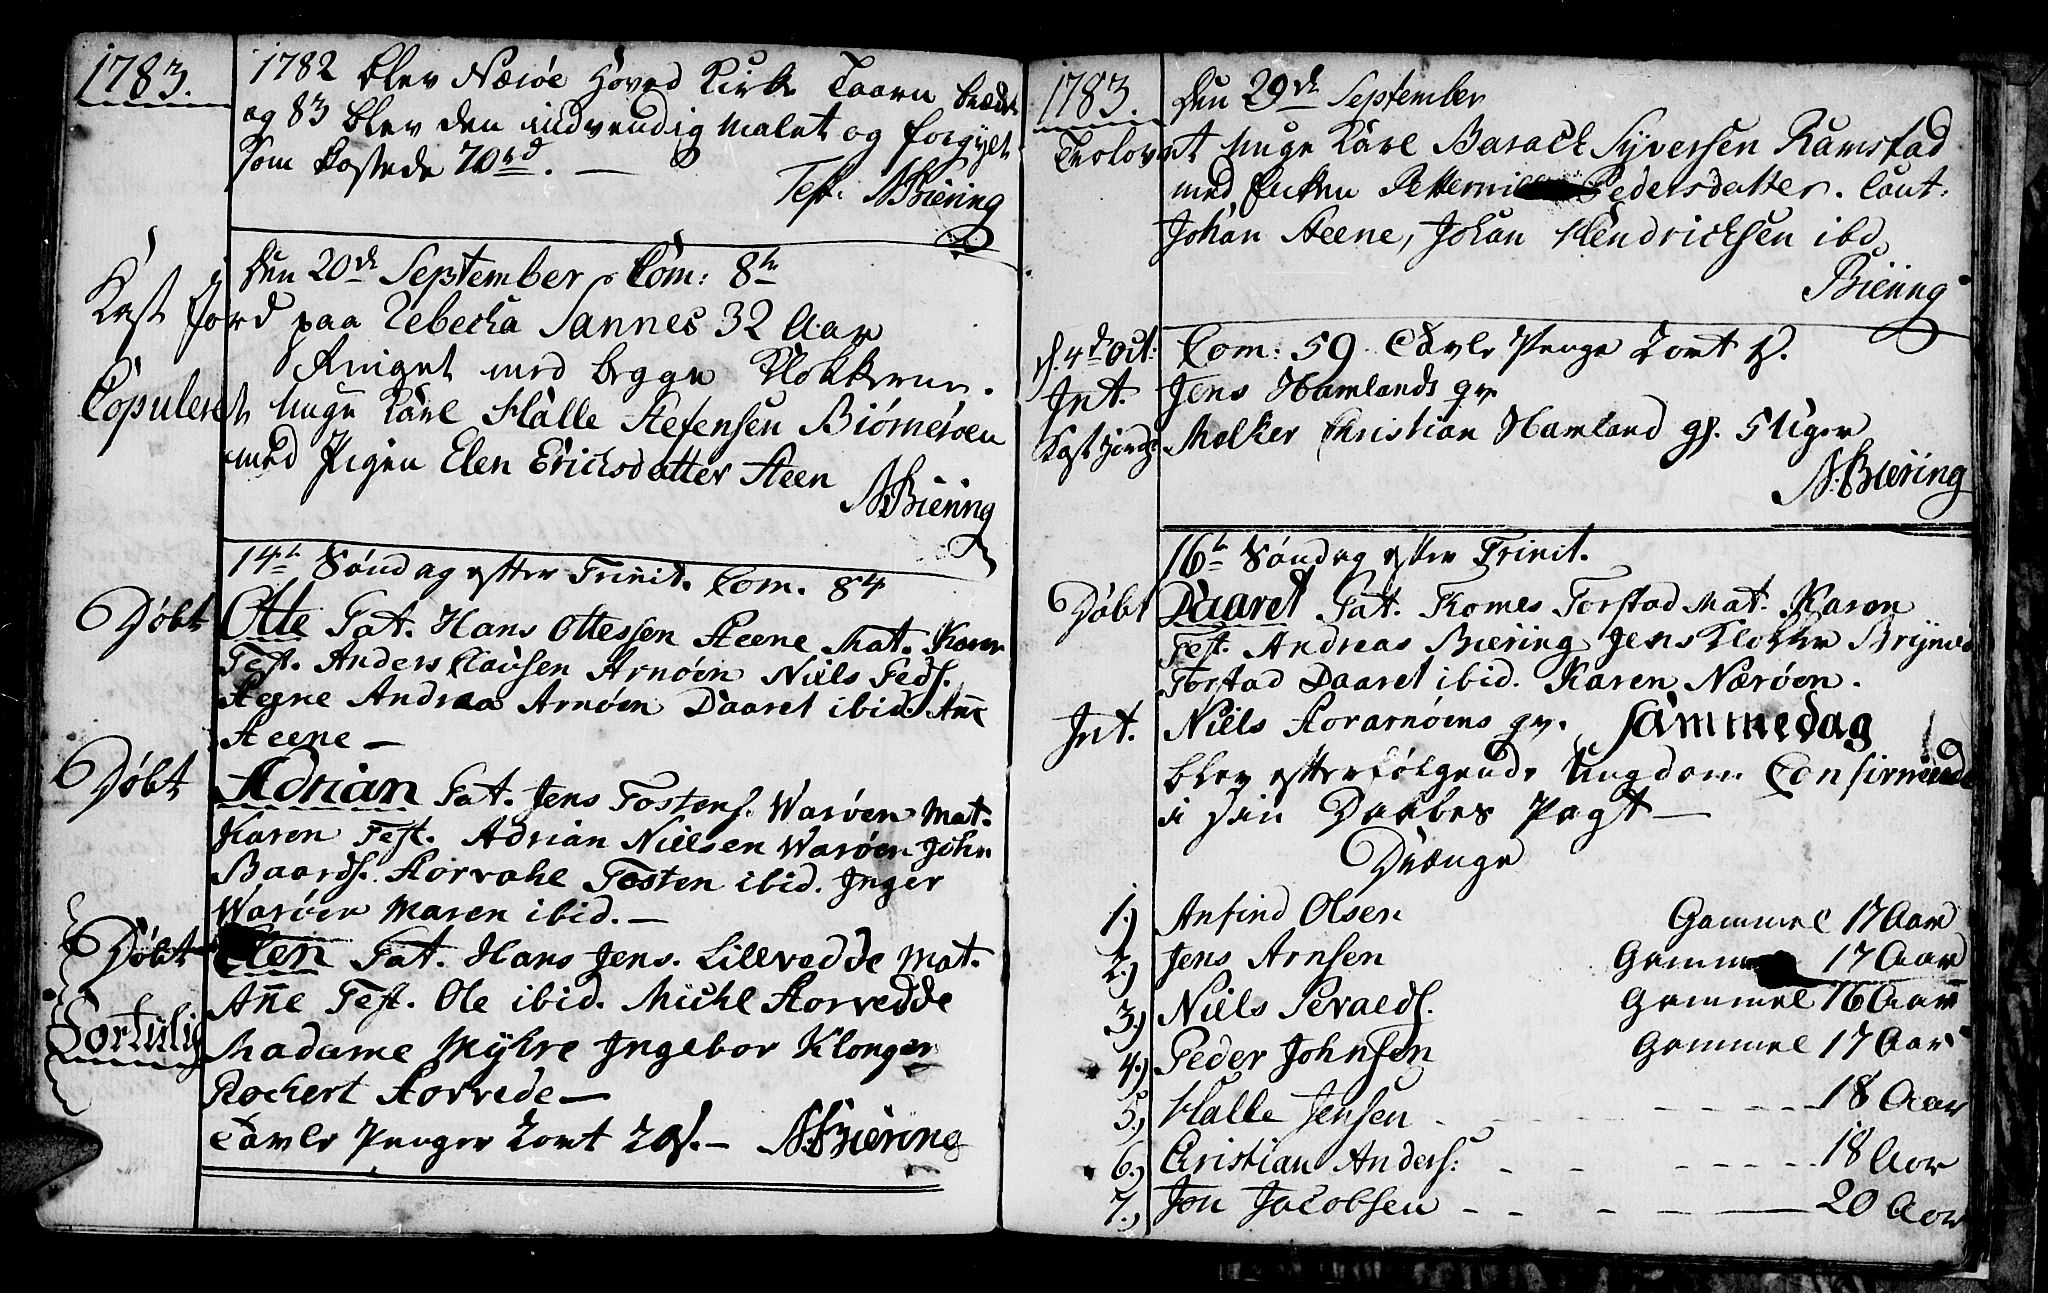 1783.
1782 blev Nærøe Hoved Kirke Taarn
og 83 blev den indvendig malet og forgylt
som kostede 70 rd. —
Test. N. Biering
Den 20de September Com: 8te
Kast Jord paa Rebecka Sannes 32 Aar
Ringet med begge Klokkerne.
Copuleret unge Karl Halle Stefensen Biørnerøen
med Pigen Elen Ericksdatter Steen
N. Biering
14te Søndag efter Trinit. Com. 84
Døbt Otte Fat. Hans Ottessen Steene Mat. Karen
Test. Anders Clausen Arnøen Niels Peds.
Steene Andrea Arnøen Daaret ibid. Anne
Steene —
Døbt Adrian Fat. Jens Tostens. Warøen Mat.
Karen Test. Adrian Nielsen Warøen John
Baards. Storvahl Tosten ibid. Inger
Warøen Maren ibid. —
Døbt Elen Fat. Hans Jens. Lillvedde Mat.
Anne Test. Ole ibid. Michl Storvedde
Madame Myhre Ingebor Klonger
Rochert Storvede —
Tavle Penger 2 ort 20 s. — N. Biering
1783.
Den 29de September
Trolovet unge Karl Barack Syversen Ramstad
med Enken Pedersdatter. Caut:
Johan Steene, Johan Hendricksen ibd.
Biering
d. 4de Oct: Com: 59. Tavle Penge 2 ort
Int. Jens Hamlands qv.
Kast Jord Melker Christian Hamland gl. 5 Uger
N. Biering
16te Søndag efter Trinit.
Døbt Daaret Fat. Thomes Torstad Mat. Karen
Test. Andreas Biering Jens Klokker
Torstad Daaret ibid. Karen Nærøen.
Int. Niels Storarnøens qv. Sammedag
blev efterfølgende Ungdom Confirmerede
i sin Daabes Pagt —
Drænge
1.) Anfind Olsen Gammel 17 Aar
2.) Jens Arnsen Gammel 17 Aar
3.) Niels Sevalds. Gammel 16 Aar
4.) Peder Johnsen Gammel 17 Aar
5.) Halle Jensen - - - - - 18 Aar
6.) Christian Anders: - - - - - 18 Aar
7.) Jon Jacobsen - - - - — 20 Aar